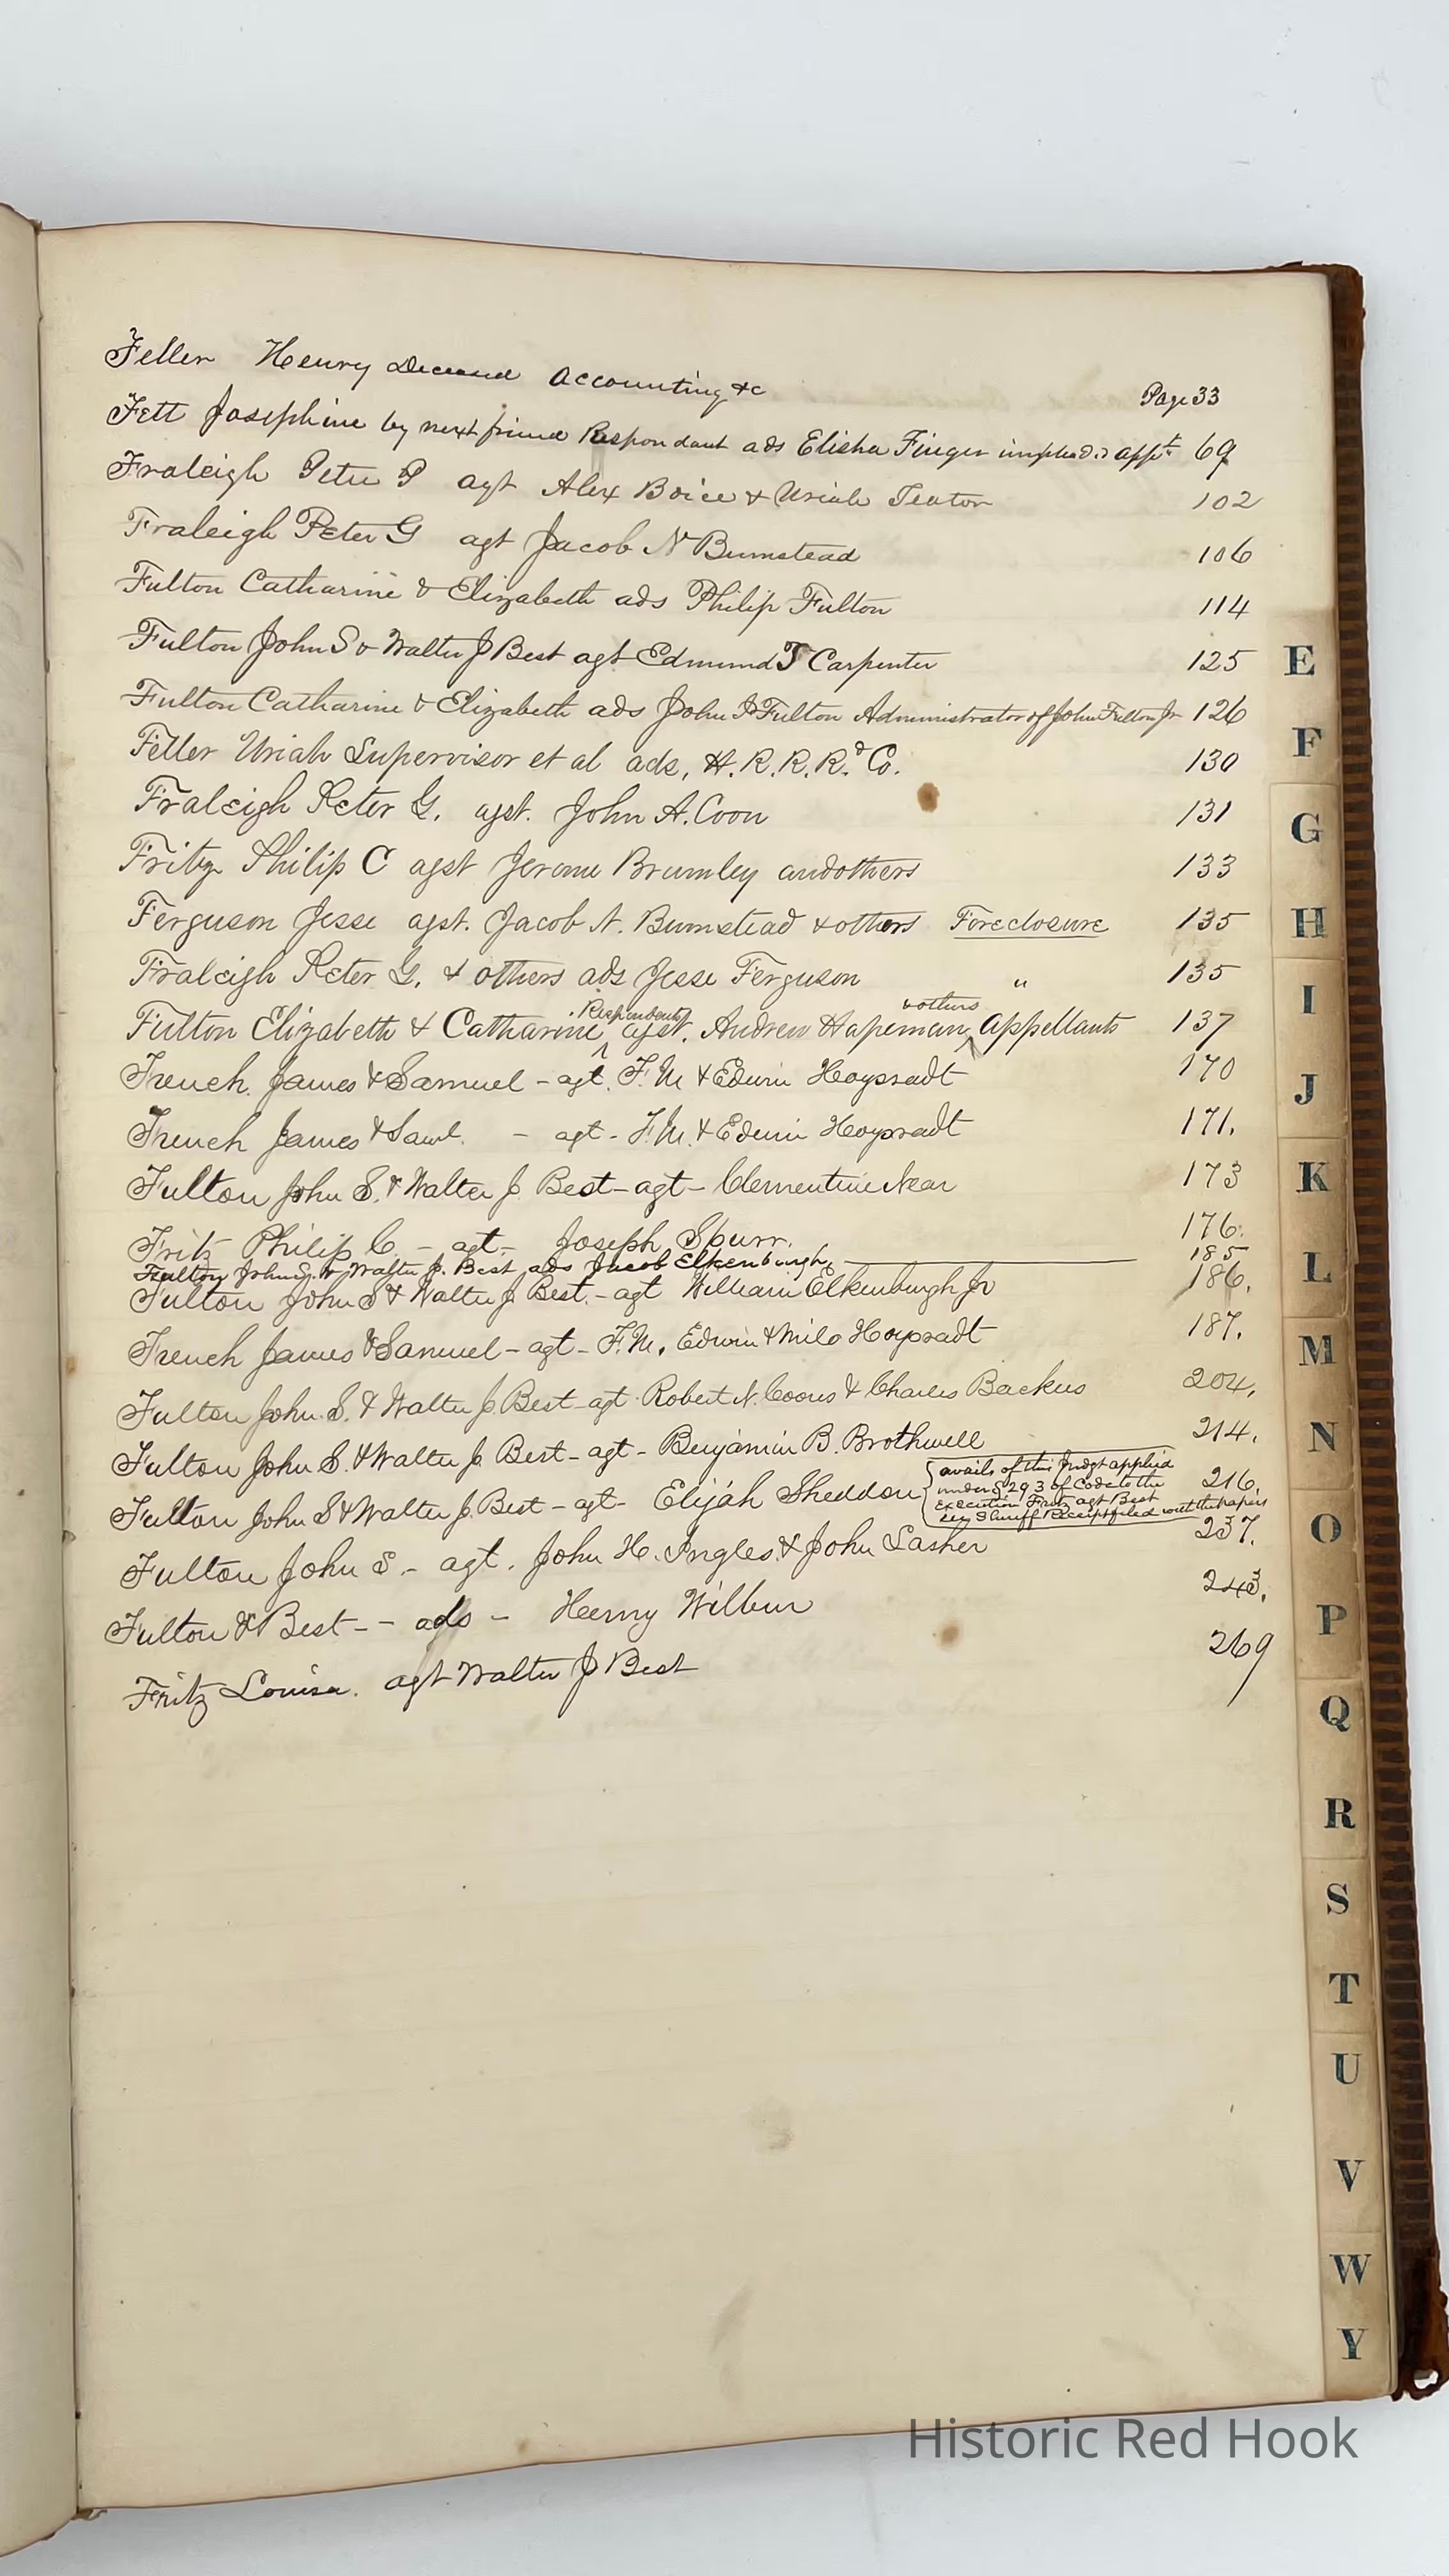 Feller Henry Deceased Accounting &c Page 33
Fett Josephine by next friend Respondant ads Elisha Finger impleaded appt 69
Fraleigh Peter P agt Alex Boice & Uriah Teator 102
Fraleigh Peter G agt Jacob N Bumstead 106
Fulton Catharine & Elizabeth ads Philip Fulton 114
Fulton John S & Walter J Best agt Edmund T Carpenter 125
Fulton Catharine & Elizabeth ads John P Fulton Administrator of John Fulton Jr 126
Feller Uriah Supervisor et al ads, H. R. R. Rd. Co. 130
Fraleigh Peter G. agst. John A. Coon 131
Fritz Philip C agst Jerome Brumley and others 133
Ferguson Jesse agst. Jacob N. Bumstead & others Foreclosure 135
Fraleigh Peter G. & others ads Jesse Ferguson " 135
Fulton Elizabeth & Catharine Respondents agst. Andrew Hapeman, & others Appellants 137
French James & Samuel - agt. F. M. & Edwin Hoysradt 170
French James & Saml. - agt - F. M. & Edwin Hoysradt 171.
Fulton John S. & Walter J. Best - agt - Clementine Near 173
Fritz Philip C. - agt - Joseph Spurr. 176.
Fulton John S. & Walter J. Best ads Jacob Elkenburgh 185
Fulton John S & Walter J. Best. - agt William Elkenburgh Jr 186.
French James & Samuel - agt - F. M. Edwin & Milo Hoysradt 187.
Fulton John. S. & Walter J. Best - agt - Robert N. Coons & Charles Backus 204.
Fulton John S. & Walter J. Best - agt - Benjamin B. Brothwell 214.
Fulton John S & Walter J. Best - agt - Elijah Sheddon 216.
avails of this Judgt applied
under § 293 of Code to the
Execution Fritz agt Best
see Sheriff Receipt filed with the papers
Fulton John S. - agt. John H. Ingles & John Lasher 237.
Fulton & Best - - ads - Henry Wilbur 243.
Fritz Louisa. agt Walter J Best 269
E
F
G
H
I
J
K
L
M
N
O
P
Q
R
S
T
U
V
W
Y
Historic Red Hook